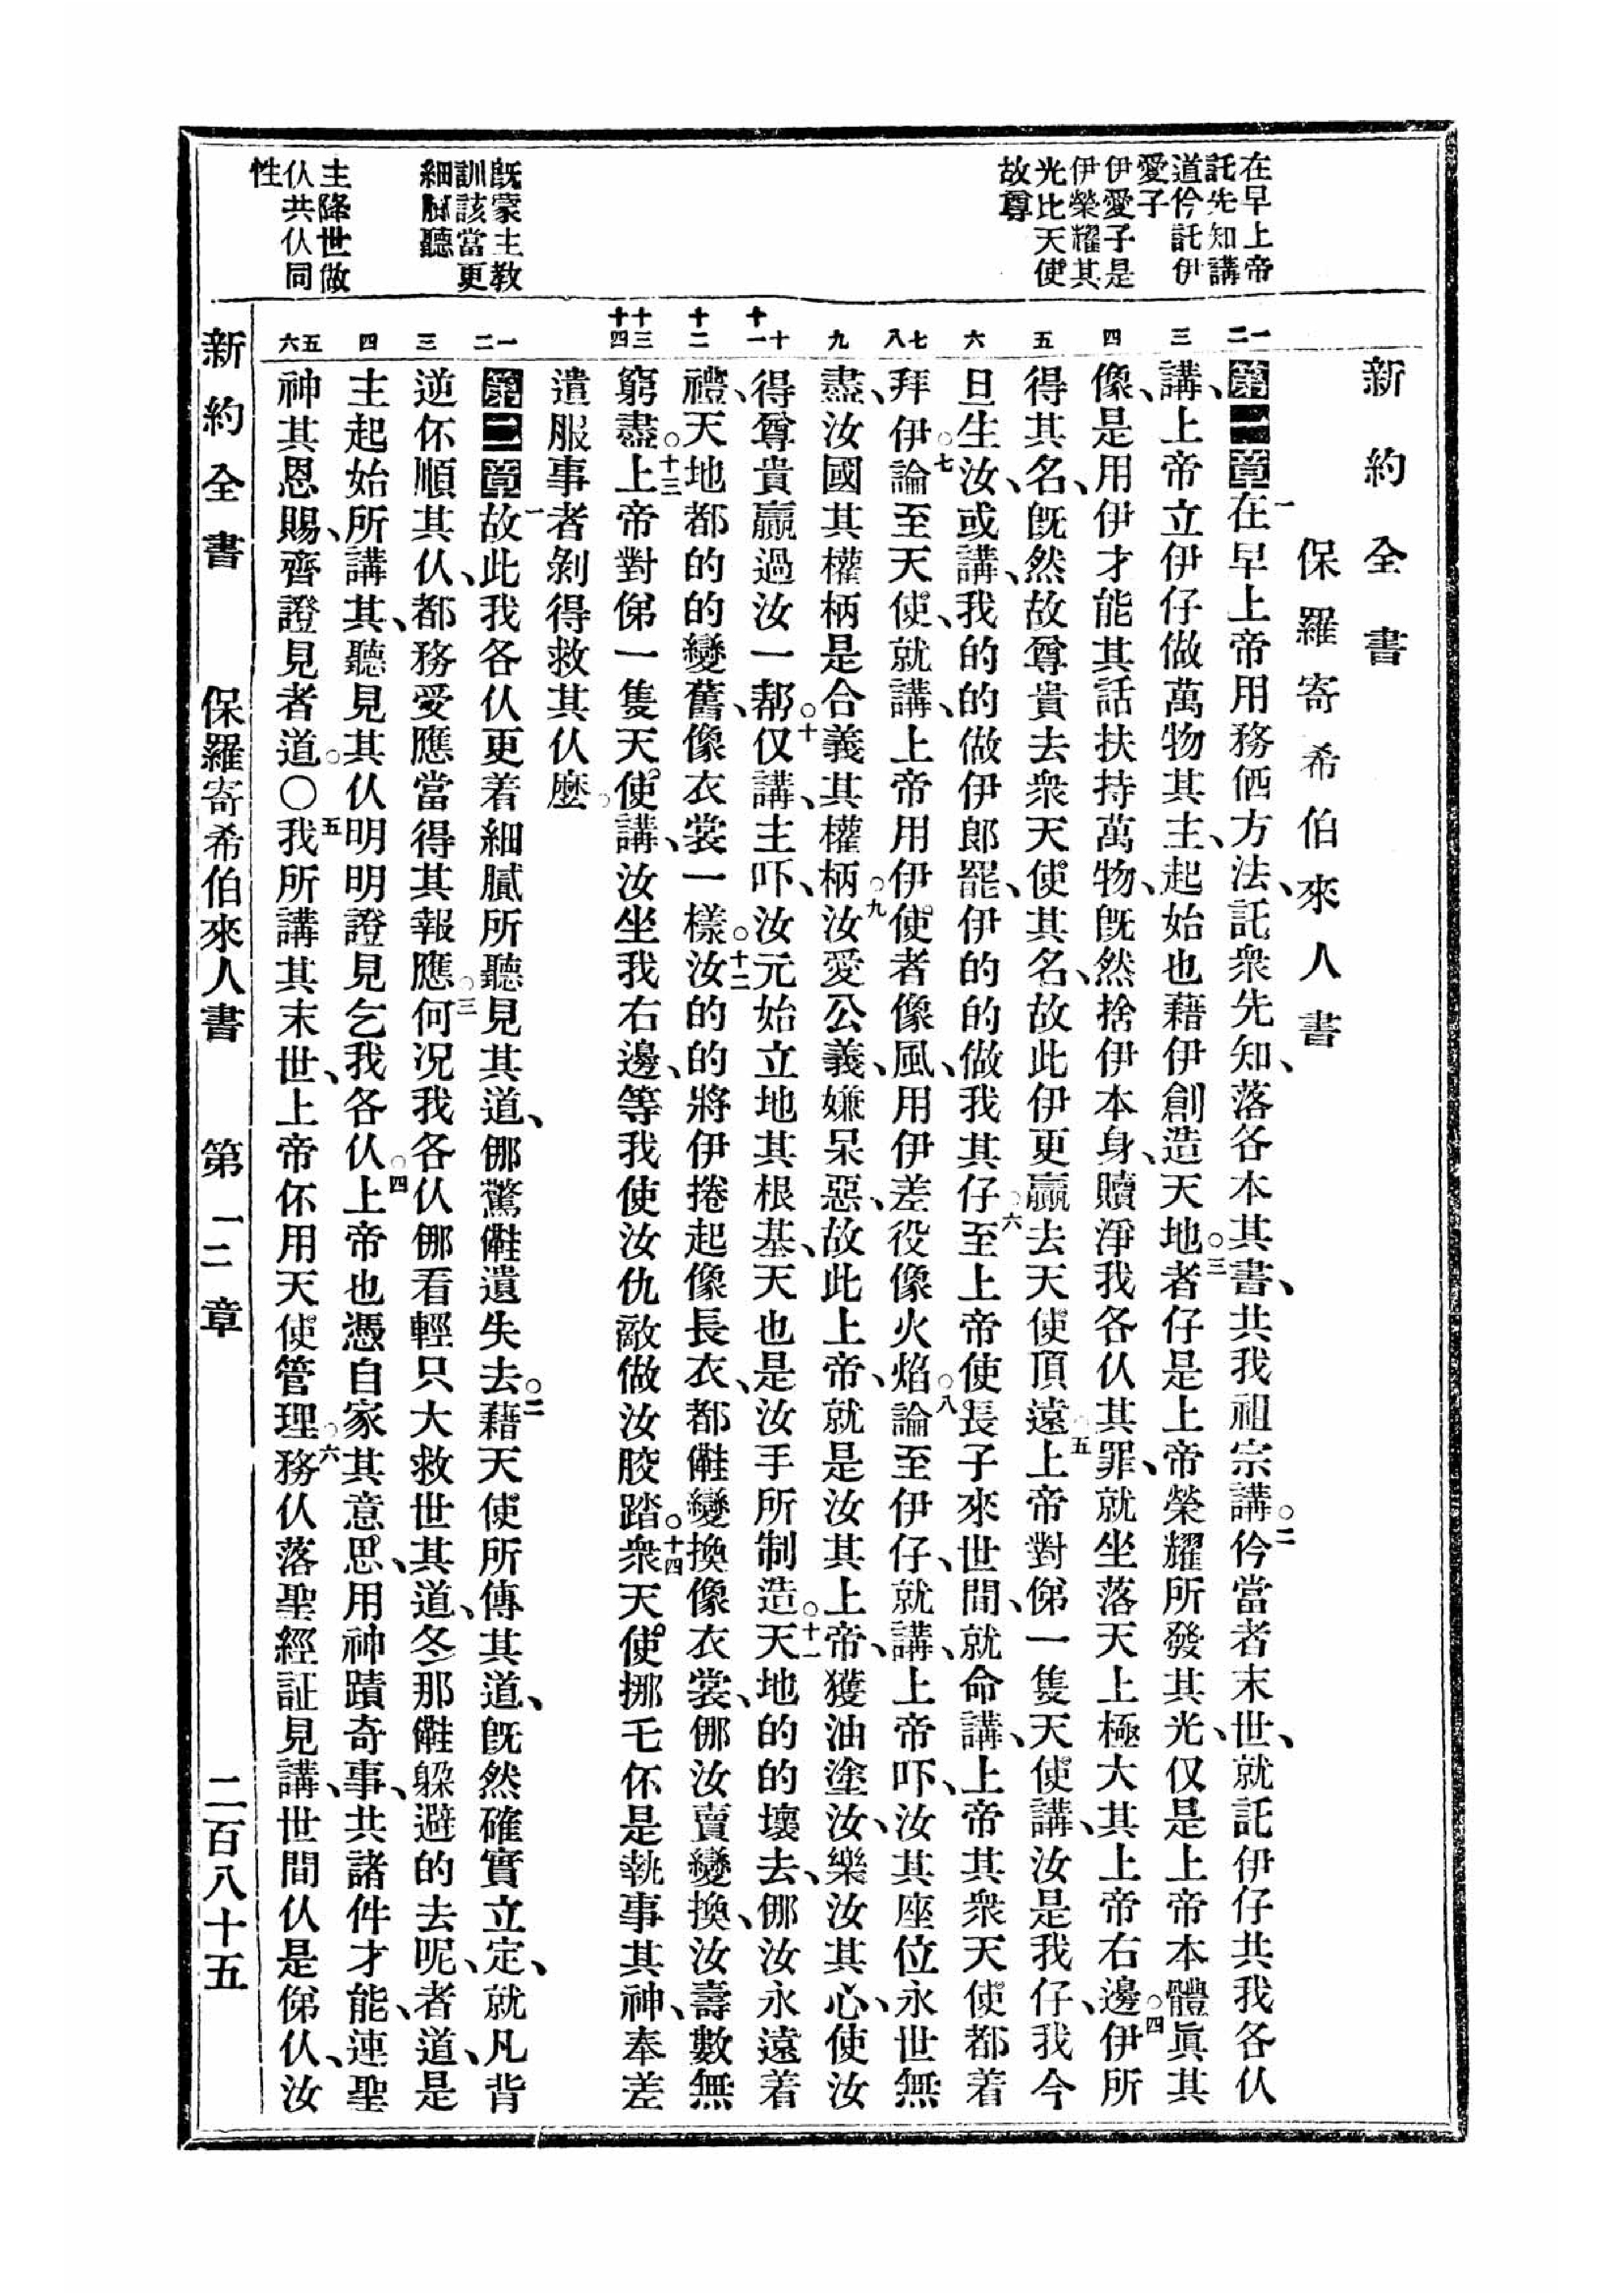 新約全書
保羅寄希伯來人書
在早上帝
託先知講
道仱託伊
愛子
伊愛子是
伊榮耀其
光比天使
故尊
旣蒙主教
訓該當更
細膩聽
主降世做
仈共仈同
性
一二
三
四
五
六
七八
九
十十一
十二
十三十四
一二
三
四
五六
第一章一在早上帝用務𠇾方法、託衆先知、落各本其書、共我祖宗講。二仱當者末世、就託伊仔共我各仈
講、上帝立伊仔做萬物其主、起始也藉伊創造天地。三者仔是上帝榮耀所發其光、仅是上帝本體眞其
像、是用伊才能其話扶持萬物、旣然捨伊本身、贖淨我各仈其罪、就坐落天上極大其上帝右邊。四伊所
得其名、旣然故尊貴去衆天使其名、故此伊更贏去天使頂遠。五上帝對俤一隻天使講、汝是我仔、我今
旦生汝、或講、我的的做伊郎罷、伊的的做我其仔。六至上帝使長子來世間、就命講、上帝其衆天使都着
拜伊。七論至天使、就講、上帝用伊使者像風、用伊差役像火焰。八論至伊仔、就講、上帝吓、汝其座位永世無
盡、汝國其權柄是合義其權柄。九汝愛公義、嫌呆惡、故此上帝、就是汝其上帝、獲油塗汝、樂汝其心、使汝
得尊貴贏過汝一幫。十仅講、主吓、汝元始立地其根基、天也是汝手所制造。十一天地的的壞去、㑚汝永遠着
禮、天地都的的變舊、像衣裳一樣。十二汝的的將伊捲起像長衣、都㑋變換像衣裳、㑚汝賣變換、汝壽數無
窮盡。十三上帝對俤一隻天使講、汝坐我右邊、等我使汝仇敵做汝骹踏。十四衆天使挪乇伓是執事其神、奉差
遣服事者剝得救其仈麼。
第二章一故此我各仈更着細膩所聽見其道、㑚驚㑋遺失去。二藉天使所傳其道、旣然確實立定、就凡背
逆伓順其仈、都務受應當得其報應。三何况我各仈㑚看輕只大救世其道、冬那㑋躲避的去呢、者道、是
主起始所講其、聽見其仈明明證見乞我各仈。四上帝也憑自家其意思、用神蹟奇事、共諸件才能、連聖
神其恩賜、齊證見者道。〇五我所講其末世、上帝伓用天使管理。六務仈落聖經証見講、世間仈是俤仈、汝
新約全書　保羅寄希伯來人書　第一二章　二百八十五